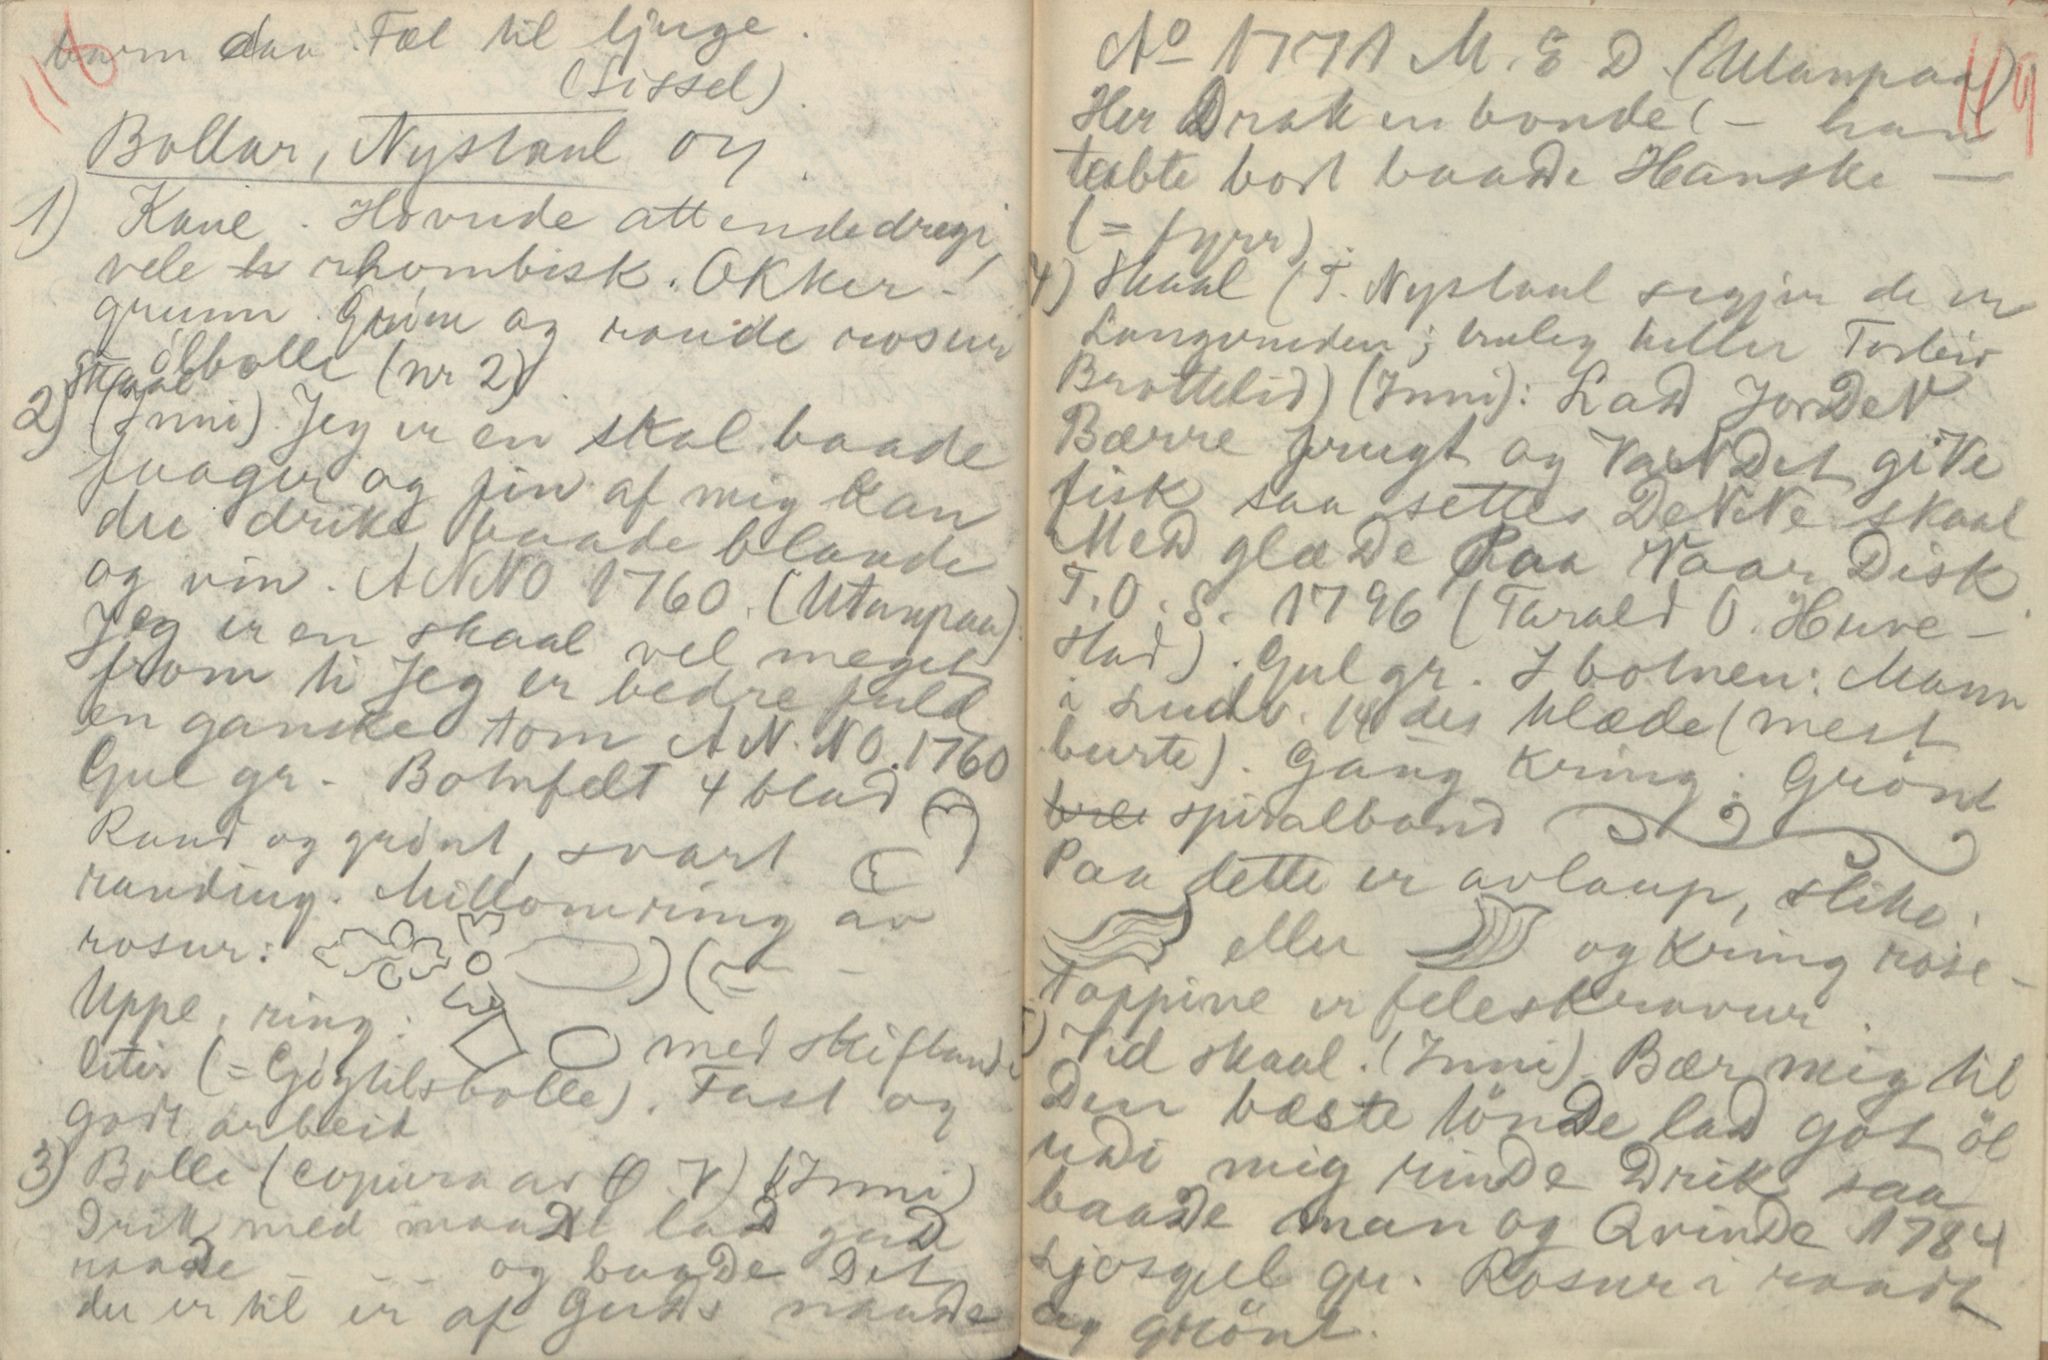 118
barn daa. Fæl til ljuge.
(Sissel).
Bollar, Nystaul oy.
1) Kane. Hovude attendedregi,
vele rhombisk. Okker-
grunn. Gröne og raude rosur
ölbolle (nr 2)
Skaal
2) (Inni). Jeg er en skal baade
faager og fin af mig kan
du drike baade blande
og vin. ANNO 1760. (Utanpaa).
Jeg er en skaal vel meget
from ti Jeg er bedre fuld
en ganske tom AN.NO.1760
Gul gr. - Botnfelt 4 blad
Raud og grönt, svart
randing. Millomring av
rosur:
Uppe, ring: med skiftande
liter (= Gjöytilsbolle). Fast og
godt arbeit
3) Bolle (copiera av O N) (Inni)
Drik med maade lad gud
raade - - - og bugde Det
du er til er af Guds naade
119
No 1771 M. E D. (Utanpaa).
Her Drak en bonde (- han
tabte bort baade Hanske -
(= fyrr).
4) Skaal (T. Nystaul segjer de er
Langvunden; truleg heller Torleiv
Brottelid) (Inni): Lad JorDeN
Bærre frugt og VaNDet giVe
fisk saa settes DeNNe skaal
Med glæde Paa Vaar Disk.
T.O.S. 1796 (Tarald O. Huve-
stad). Gul gr. I botnen: Mann
i Ludv. 14 des klæde (mest
burte). Gang kring: Grönt
spiralband
Paa dette er avlaup, slike:
eller og kring rose-
toppine er feleskravur.
5) Vid skaal. (Inni) Bær mig til
Den bæste lönDe lad got öl
udi mig rinDe Drik saa
baade man og QvinDe 1784
Ljosgul gr. Rosur i raudt
og grönt.